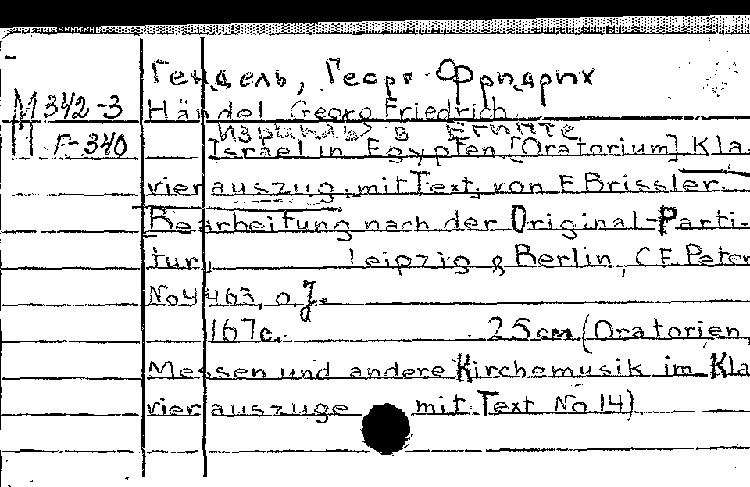 Гендель, Георг Фридрих
М 342-3 Händel Georg Friedrich
П Израиль в Египте
Г-340 Israel in Egypten [Oratorium] Kla-
vierauszug mit Text, von F. Brissler.
Bearbeitung nach der Original-Parti-
tur, Leipzig & Berlin, C F. Peter
No 4463, o J.
167 c. 25 cm. (Oratorien,
Messen und andere Kirchemusik im Kla
vierauszuge mit Text No 14)